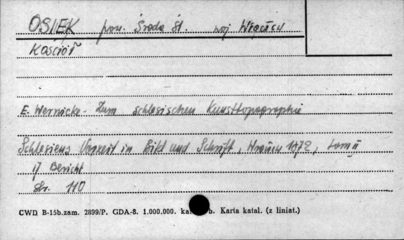 OSIEK pow. Środa Śl. woj Wrocław
Kościół
E. Wernicke - Zum schlesischen Kunsttopographie
Schlesiens Vorzeit in Bild und Schrift, 1872, tom II
17 Bericht
Str. 110
CWD B-15b.zam. 2899/P. GDA-8. 1.000.000. Karta katal. (z liniat.)